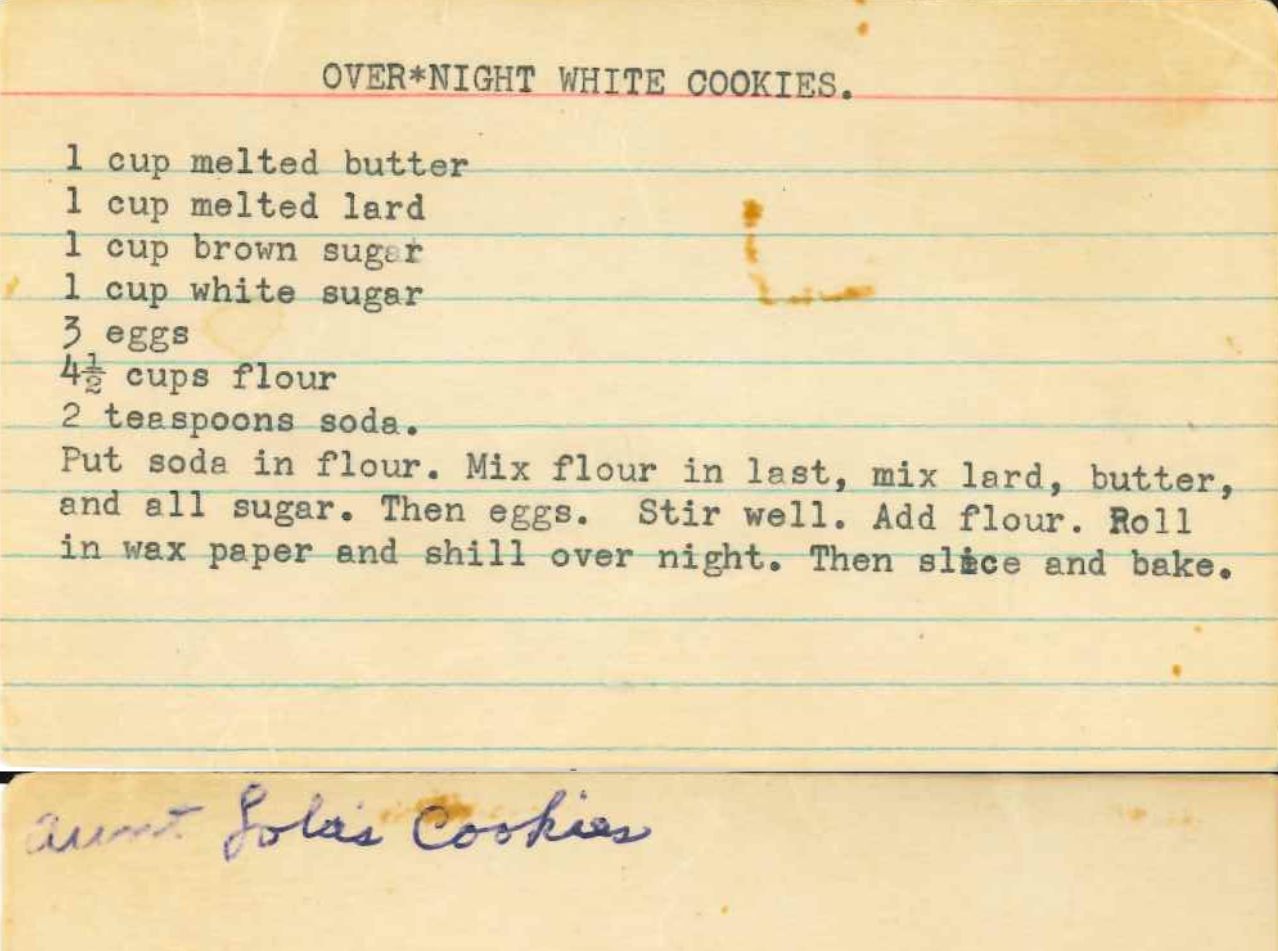 OVER*NIGHT WHITE COOKIES.
1 cup melted butter
1 cup melted lard
1 cup brown sugar
1 cup white sugar
3 eggs
4½ cups flour
2 teaspoons soda.
Put soda in flour. Mix flour in last, mix lard, butter,
and all sugar. Then eggs. Stir well. Add flour. Roll
in wax paper and shill over night. Then slice and bake.
aunt Lola's Cookies